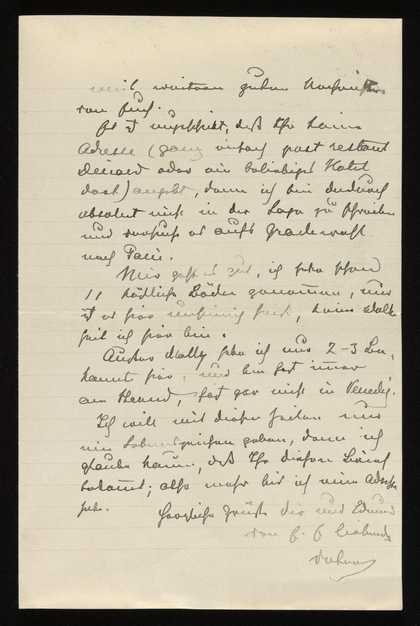 weil weitere guten Nachrichten
von Euch.
Es ist ungeschickt, daß Ihr keine
Adresse (ganz einfach post restant
Dinard oder ein beliebiges Hotel
dort) angebt, denn ich bin dadurch
absolut nicht in der Lage zu schreiben
und verschieße es aufs Gradewohl
nach Paris.
Mir geht es gut, ich habe schon
11 köstliche Bäder genommen, nur
ist es hier heiß, keine Kälte
seit ich hier bin.
Außer Molly habe ich nur 2-3 Be-
kannte hier, und bin fast immer
am Strand, fast gar nicht in Venedig.
Ich will mit diesen Zeilen nur
ein Lebenszeichen geben, denn ich
glaube kaum, daß Ihr diesen Brief
bekommt; also mehr bis ich eine Adresse
habe.
Herzlichst grüßt Dich und Edmund
von